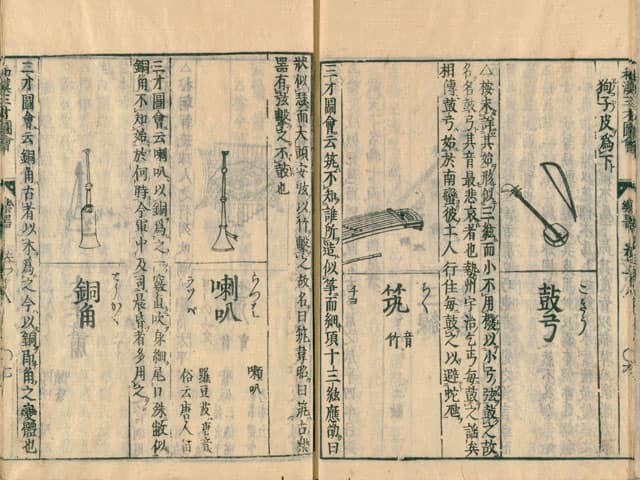 狗子皮為下
鼓弓
こきう
△按未詳其始形似三絃而小不用撥以小弓弦鼓之故
名鼓弓其音最悲哀者也勢州宇治乞丐毎鼓之謡矣
相傳鼓弓始於南蠻彼土人行住毎鼓之以避蛇虺
筑
ちく
音竹
三才圖會云筑不知誰所造似箏而細項十三絃應劭曰
狀似瑟而大頭安弦以竹擊之故名曰筑韋昭曰筑古樂
器有弦擊之不鼓也
喇叭
らつは
俗云唐人笛
三才圖會云喇叭以銅爲之一竅直吹身細尾口殊敝似
銅角不知始於何時今軍中及司晨昏者多用之
銅角
とうかく
三才圖會云銅角古者以木爲之今以銅卽角之變體也
和漢三才圖會